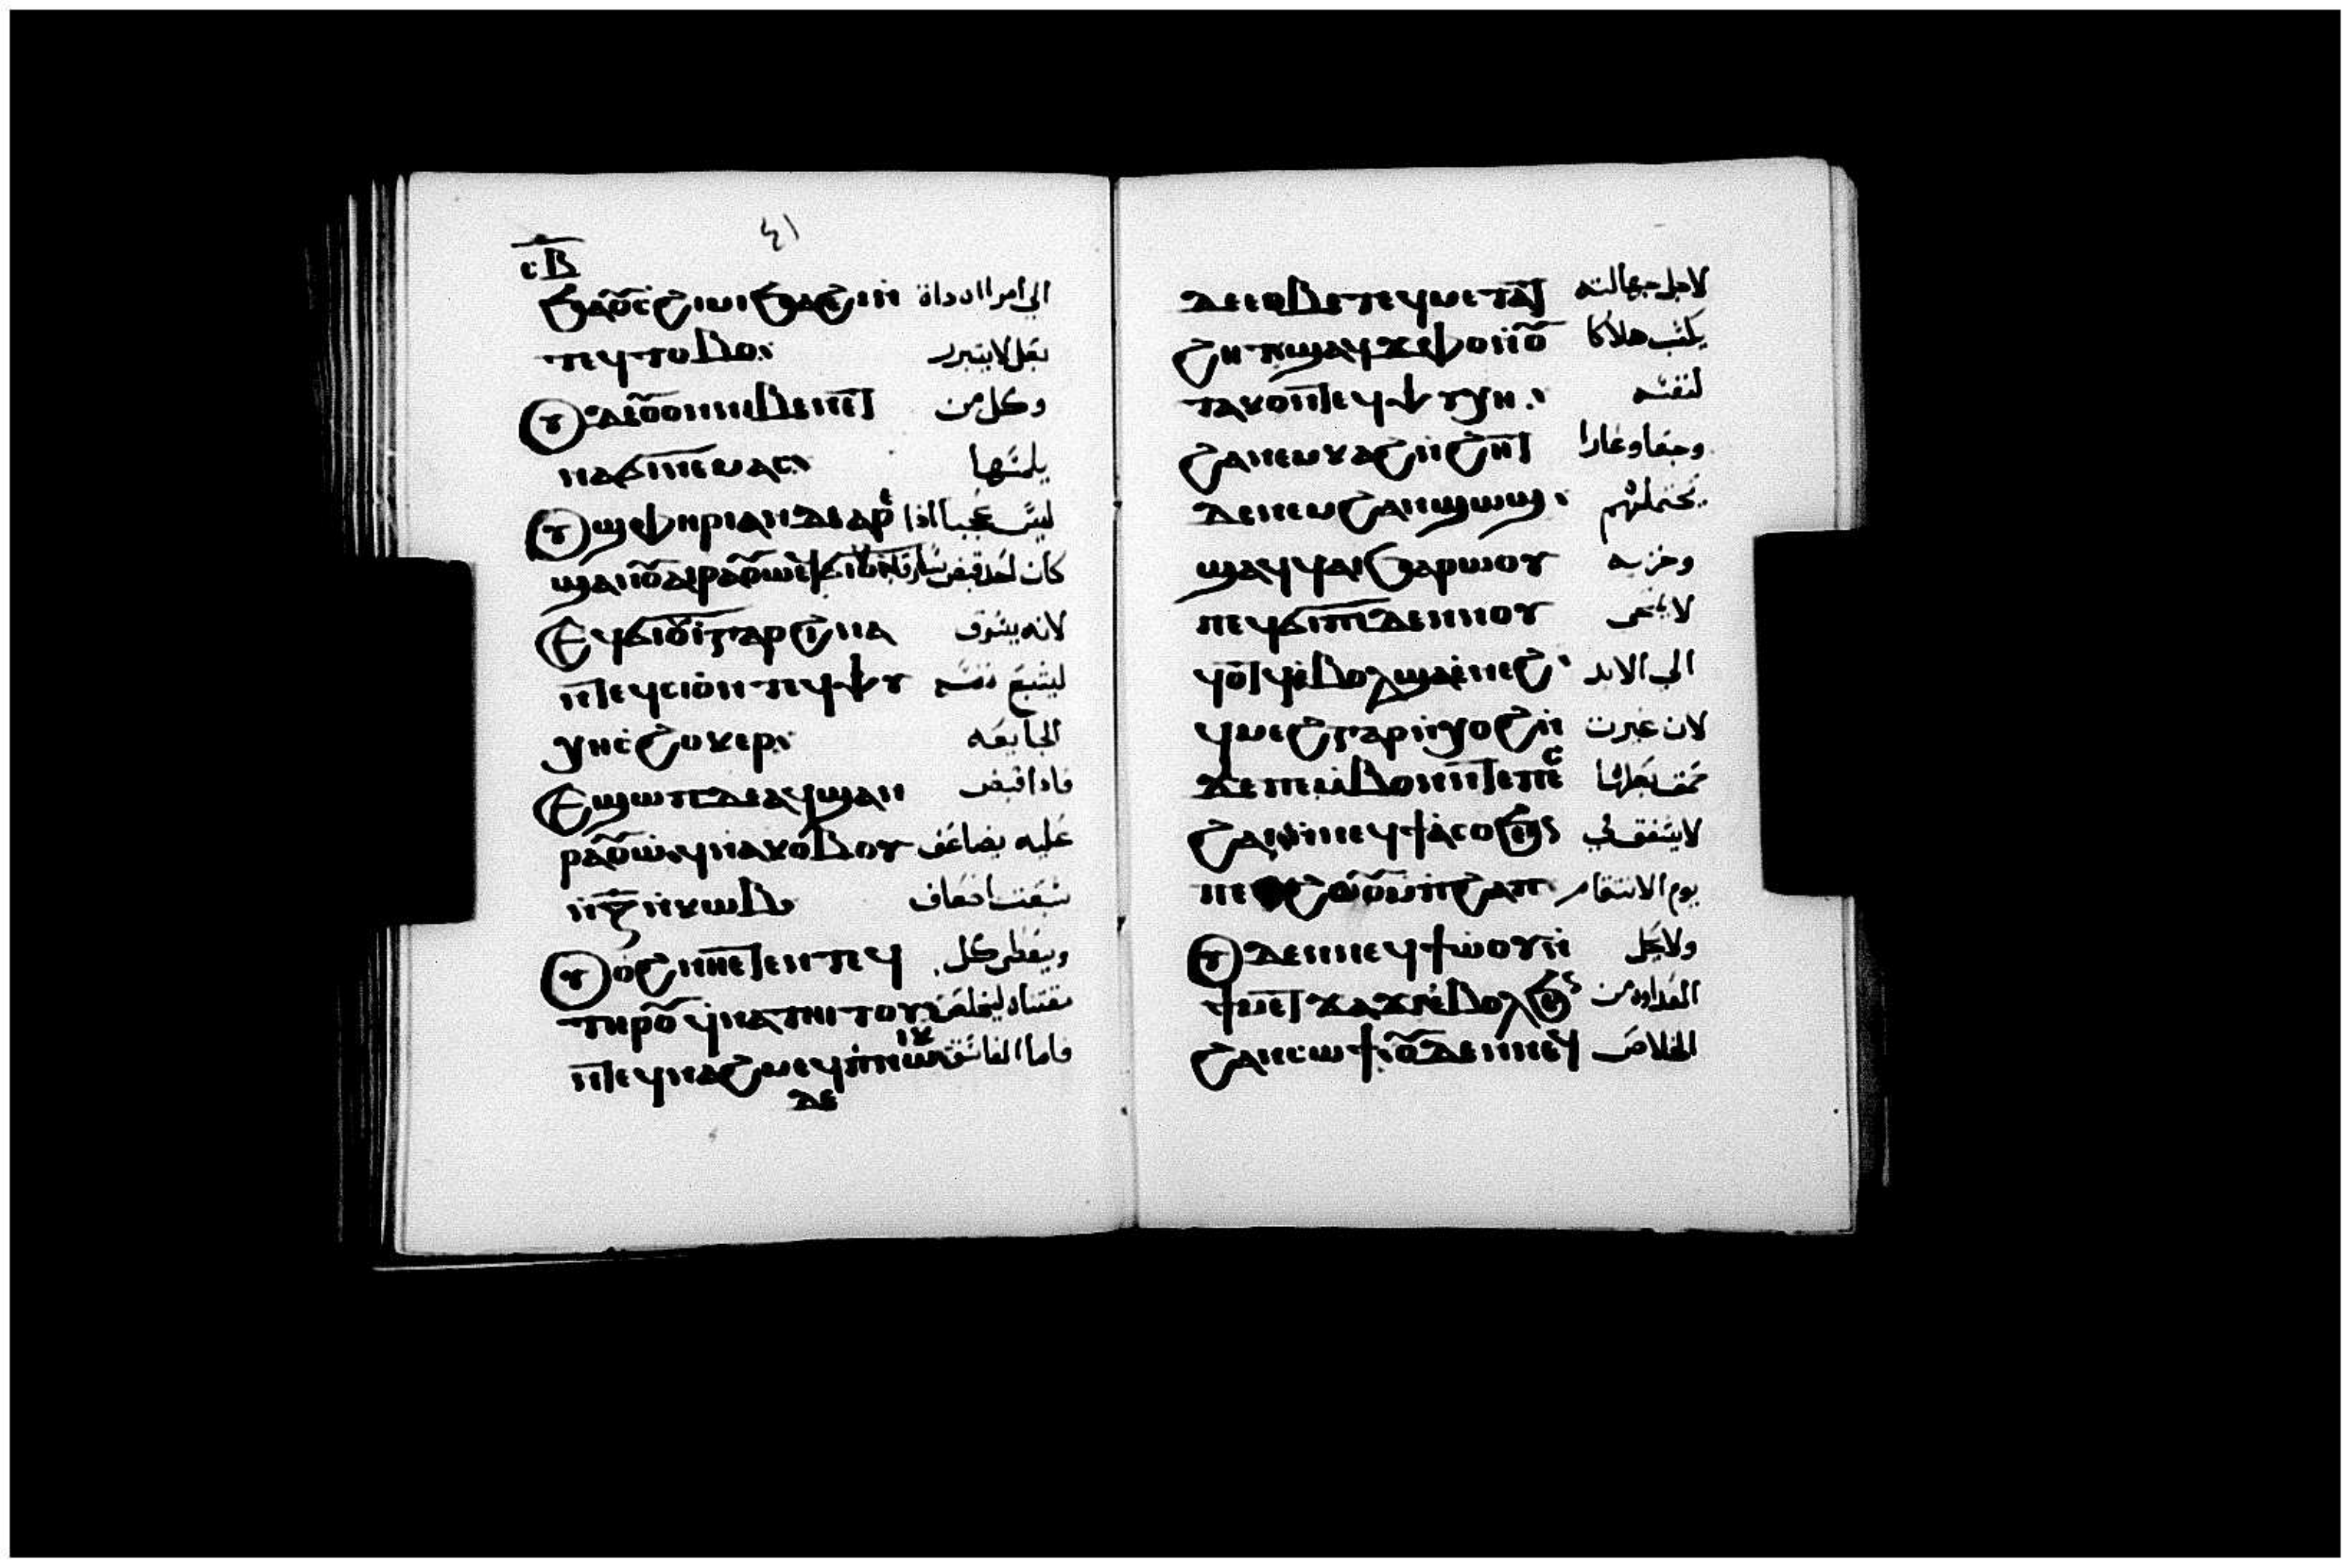 ⲥⲃ
٤١
ϧⲁⲟⲩⲥϩⲓⲙⲓϧⲁϩⲁⲓⲛ̀ الي امراه ذاة
ⲛⲉϥⲧⲟⲩⲃⲟ بعل لا يتبرر
ⲟⲩⲇⲉⲟⲩⲟⲛⲛⲓⲃⲉⲛⲉⲧ وكل من
ⲛⲁϭⲓⲛⲉⲙⲁⲥ يلمسها
ⲟⲩϣⲫⲏⲣⲓⲁⲛⲇⲉⲁⲣⲉ ليس عجبا اذا
ϣⲁⲛⲟⲩⲁⲓⲣⲁⲟⲩⲱⲉϥϭⲓⲟⲩⲓ كان احد قبض سارقا
ⲉϥϭⲓⲟⲩⲓⲅⲁⲣϩⲓⲛⲁ لانه يسرق
ⲛⲧⲉϥⲥⲓⲟⲛⲧⲉϥⲯⲩ ليشبع نفسه
ⲭⲏⲉⲥϩⲟⲕⲉⲣ الجايعه
ⲉϣⲱⲡⲇⲉⲁϥϣⲁⲛ فاذا قبض
ⲣⲁⲟⲩⲱϥⲛⲁⲕⲟⲃⲟⲩ عليه يضاعف
ⲛ̀ⲍ̅ⲛ̀ⲕⲱⲃ سبعت اضعاف
ⲟⲩⲟϩⲛⲏⲉⲧⲉⲛⲧⲉϥ ويعطى كل
ⲧⲏⲣⲟⲩϥⲛⲁⲧⲏⲓⲧⲟⲩ مقتناه ليخلص
ⲛⲧⲉϥⲛⲁϩⲙⲉϥⲡⲓⲛⲱⲓⲕ فاما الفاسق
ⲇⲉ
ⲇⲉⲉⲑⲃⲉⲧⲉϥⲙⲉⲧⲁⲧ لاجل جهالته
ϩⲏⲧϣⲁϥϫⲫⲟⲛⲟⲩ يكسب هلاكا
ⲧⲁⲕⲟⲛⲧⲉϥⲯⲩⲭⲏ لنفسه
ϩⲁⲛⲉⲙⲕⲁϩⲛ̀ϩⲏⲧ وجعا وعارا
ⲇⲉⲛⲉⲙϩⲁⲛϣⲱϣ يحتملهم
ϣⲁϥϥⲁⲓϧⲁⲣⲱⲟⲩ وخزيه
ⲡⲉϥϭⲓⲡⲓⲇⲉⲛⲛⲟⲩ لا يمحى
ϥⲟⲧϥⲉⲃⲟⲗϣⲁⲉⲛⲉϩ الي الابد
ϥⲙⲉϩⲅⲁⲣⲛ̀ⲭⲟϩⲛ̀ لان غيرت
ϫⲉⲡⲉⲙⲃⲟⲛⲛⲧⲉⲡⲉⲥ حمق بعلها
ϩⲁⲓⲛⲛⲉϥϯⲁⲥⲟϧⲉⲛ لا يشفق في
ⲡⲉϩⲟⲟⲩⲙ̀ⲡϩⲁⲡ يوم الانتقام
ⲟⲩⲇⲉⲛⲛⲉϥϯⲙⲟⲩⲛ̀ ولا يحل
ϯⲙⲉⲧϫⲁϫⲓⲉⲃⲟⲗϧⲉⲛ العداوه من
ϩⲁⲛⲥⲱϯⲟⲩⲇⲉⲛⲛⲉϥ الخلاص